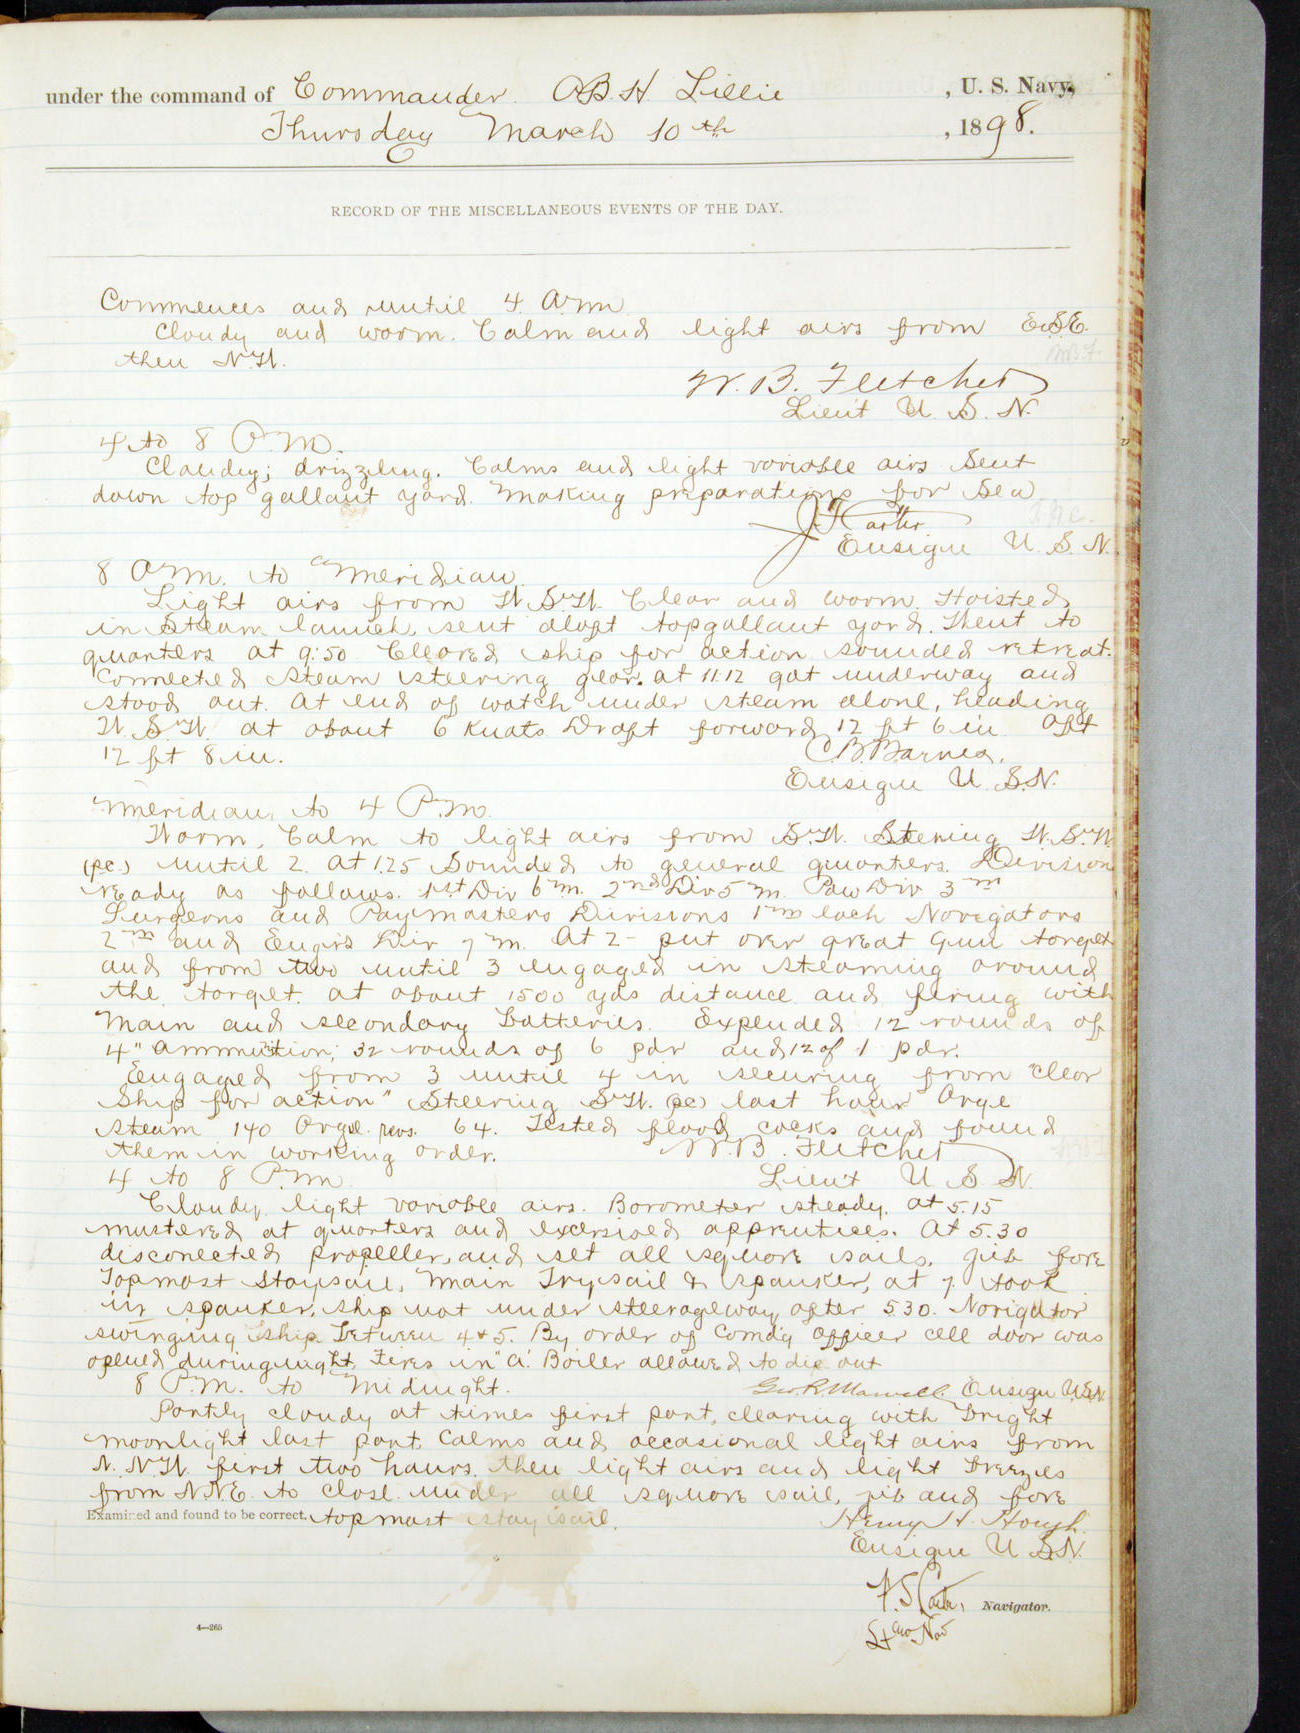 under the command of Commander A.B.H. Lillie, U. S. Navy,
Thursday March 10th, 1898.
RECORD OF THE MISCELLANEOUS EVENTS OF THE DAY.
Commences and until 4 A.m
Cloudy and warm. Calm and light airs from E.S.E.
then N.W.
W. B. Fletcher
Lieu't U. S. N.
4 to 8 P.M.
Cloudy; drizzling. Calms and light variable airs Sent
down top gallant yard. Making preparations for Sea
Ensign U. S. N.
8 A.m. to meridian.
Light airs from W.S.W. Clear and warm. Hoisted
in Steam launch, sent aloft topgallant yard. Went to
quarters at 9:50 Cleared ship for action sounded retreat.
Connected steam steering gear. at 11.12 got underway and
stood out. At end of watch under steam alone, heading
W.S.W. at about 6 knots Draft forward 12 ft 6 in Aft
12 ft 8 in.
C.B. Barnes,
Ensign U. S.N.
Meridian to 4 P.m.
Warm, Calm to light airs from S.W. Steering W.S.W
(pc.) until 2. At 1.25 Sounded to general quarters. Division
ready as follows. 1st Div 6 m. 2nd Div 5 m. Pow Div 3 m
Surgeons and Paymasters Divisions 1 m each Navigators
2 m and Eng'rs Div 7 m. At 2- put over great gun target
and from two until 3 engaged in steaming around
the target at about 1500 yds distance and firing with
Main and secondary batteries. Expended 12 rounds of
4" ammunition; 32 rounds of 6 pdr and 12 of 1 pdr.
Engaged from 3 until 4 in securing from "clear
Ship for action" Steering S.W. (pc) last hour Avge
steam 140 Avge. revs. 64. Tested flood cocks and found
them in working order.
W. B. Fletcher
Lieu't U S N.
4 to 8 P.m.
Cloudy, light variable airs. Barometer steady. At 5.15
mustered at quarters and excersised apprentices. At 5.30
disconected propeller, and set all square sails, jib fore
Topmast Staysail, Main Trysail & spanker, at 7. took
in spanker, ship not under steerageway after 5.30. Navigator
swinging ship between 4 & 5. By order of Comd'g Officer cell door was
opened during night. Fires in "A" Boiler allowed to die out
Geo. R. Marvell Ensign U.S.N.
8 P.M. to Midnight.
Partly cloudy at times first part, clearing with bright
moonlight last part. Calms and occasional light airs from
N.NW. first two hours. then light airs and light breezes
from N.N.E. to close. under all square sail, jib and fore
Examined and found to be correct. topmast stay sail.
Henry H. Hough.
Ensign U S.N.
Navigator.
4—265